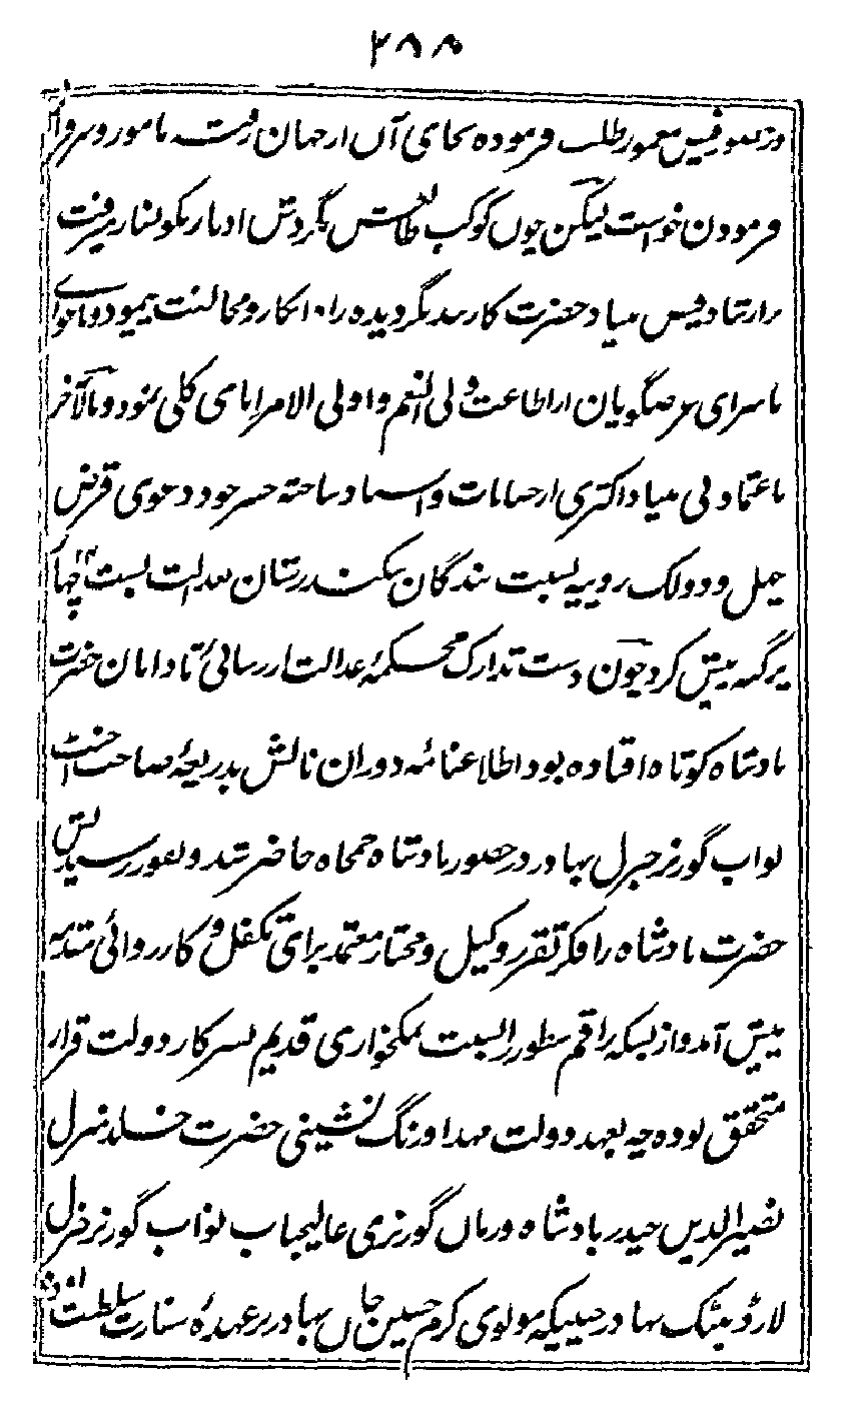 ۲۸۸
معمور طلب فرموده بجای آں از جہان رفتہ مامور و سرفراز
فرمودن خواست لیکن چوں کوکب طالعش بگردش ادبار نگونسار میرفت
حضرت کاربند نگردیده راه انکار و مخالفت پیمود و باغوای
ناسزای هرزه‌گویان از اطاعت ولی النعم و اولی الامر ابای کلی نمود و بالآخر
و اسناد ساخته خود دعوی قرض
چهل و دو لک روپیه نسبت بندگان سکندر شان بعدالت بست۲۴ چهار
پرگنه پیش کرد چون دست تدارک محکمهٔ عدالت از رسائی تا دامان حضرت
بادشاه کوتاه افتاده بود اطلاعنامه دوران نالش بذریعهٔ صاحب رسیدنٹ
نواب گورنر جنرل بہادر در حضور بادشاه جمجاه حاضر شد و بفور رسیدنش
حضرت بادشاه را فکر تقرر وکیل و مختار معتمد برای تکفل و کارروائی مقدمه
پیش آمد و از بسکه راقم سطور را نسبت نمکخواری قدیم بسرکار دولت قرار
متحقق بوده چه بعهد دولت مهد اورنگ نشینی حضرت خلد منزل
نصیر الدین حیدر بادشاه و زمان گورنری عالیجناب نواب گورنر جنرل
لارڈ بنٹنک بہادر حینیکه مولوی کرم حسین خاں بہادر بر عہدهٔ سفارت سلطنت اودھ